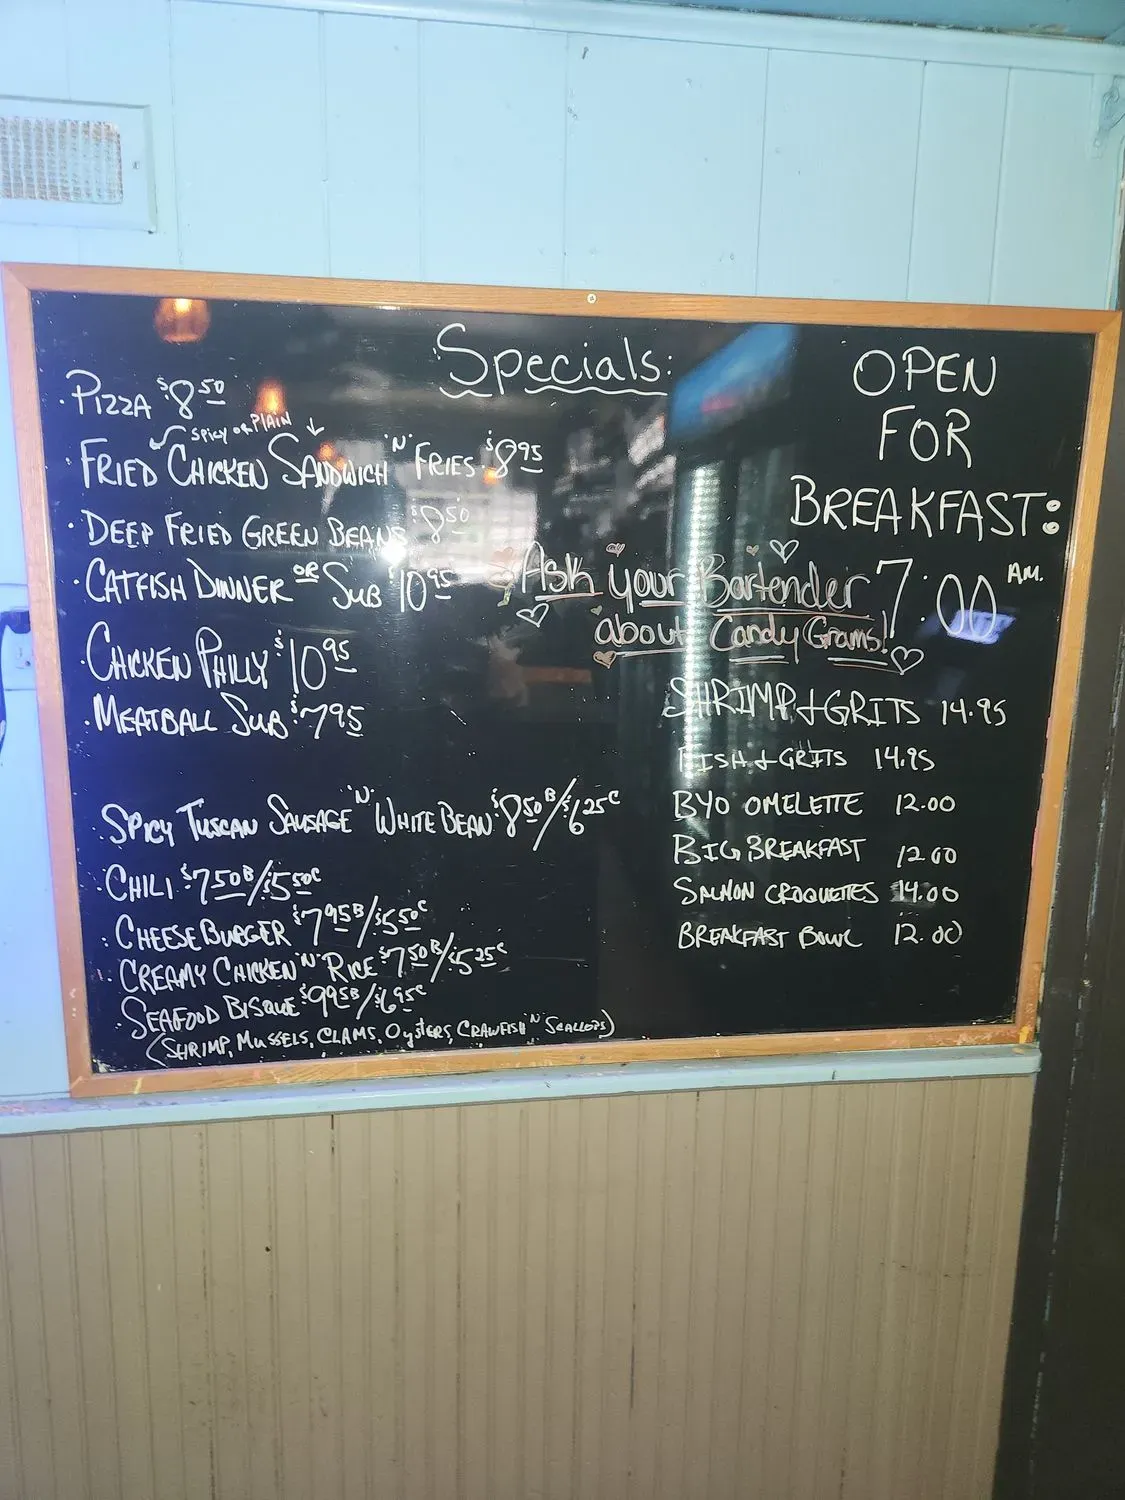 Specials:
· PIZZA $8.50
SPICY OR PLAIN
· FRIED CHICKEN SANDWICH "N" FRIES $8.95
· DEEP FRIED GREEN BEANS $8.50
· CATFISH DINNER OR SUB $10.95
· CHICKEN PHILLY $10.95
· MEATBALL SUB $7.95
· SPICY TUSCAN SAUSAGE "N" WHITE BEAN $8.50 B/$6.25 C
· CHILI $7.50 B/$5.50 C
· CHEESEBURGER $7.95 B/$5.50 C
· CREAMY CHICKEN "N" RICE $7.50 B/$5.25 C
· SEAFOOD BISQUE $9.95 B/$6.95 C
(SHRIMP, MUSSELS, CLAMS, OYSTERS, CRAWFISH "N" SCALLOPS)
Ask your Bartender
about Candy Grams!
OPEN
FOR
BREAKFAST:
7:00 AM.
SHRIMP + GRITS 14.95
FISH + GRITS 14.95
BYO OMELETTE 12.00
BIG BREAKFAST 12.00
SALMON CROQUETTES 14.00
BREAKFAST BOWL 12.00